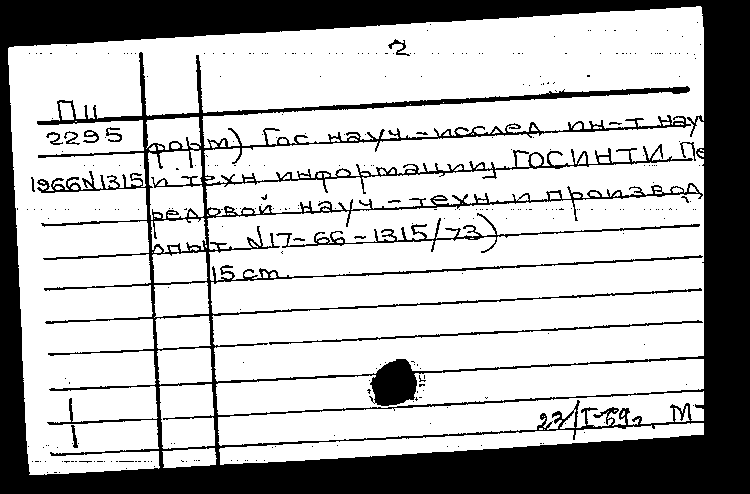 2
П II
2295 форт). Гос. науч.-исслед ин-т науч
1966 N1315 и техн информации ГОСИНТИ. Пе
редовой науч.-техн. и производ
опыт. N17-66-1315/73)
15 cm.
27/I-69г. М